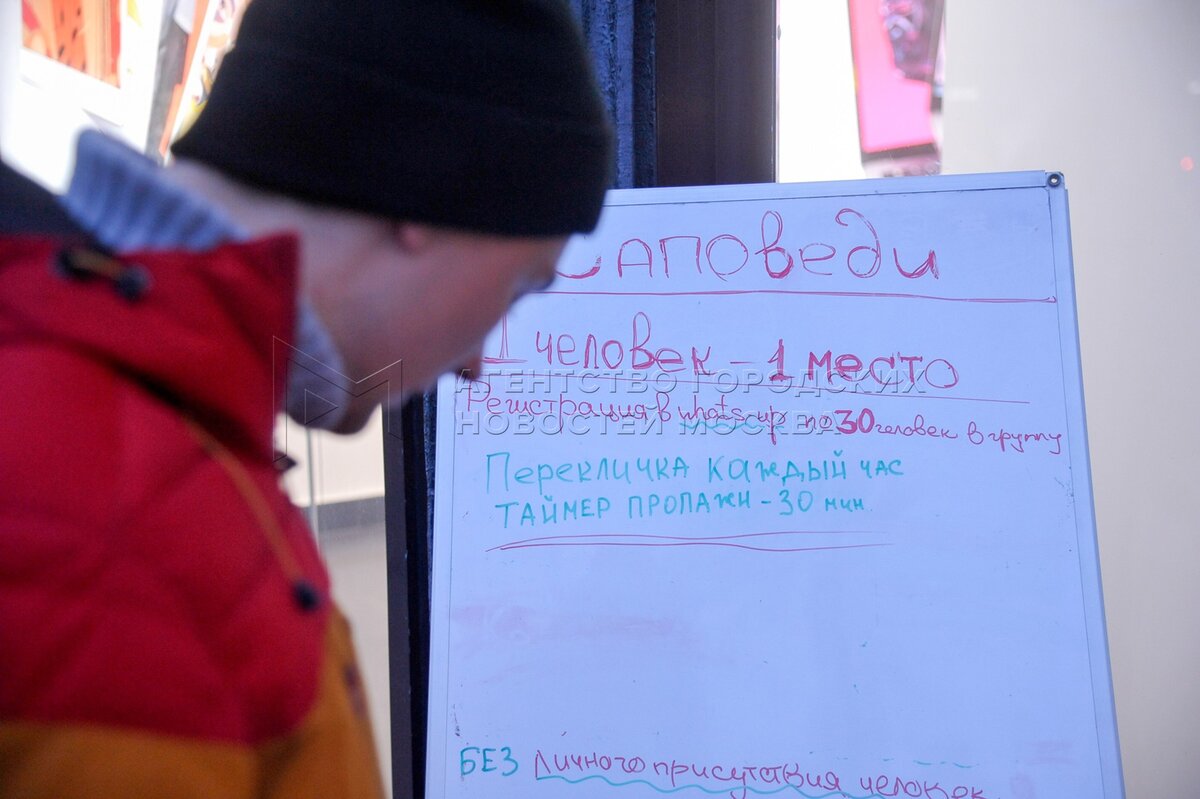 Заповеди
1 человек - 1 место
Регистрация в whats up по 30 человек в группу
АГЕНТСТВО ГОРОДСКИХ
НОВОСТЕЙ МОСКВА
Перекличка каждый час
ТАЙМЕР ПРОПАЖИ - 30 мин.
БЕЗ личного присутствия человек